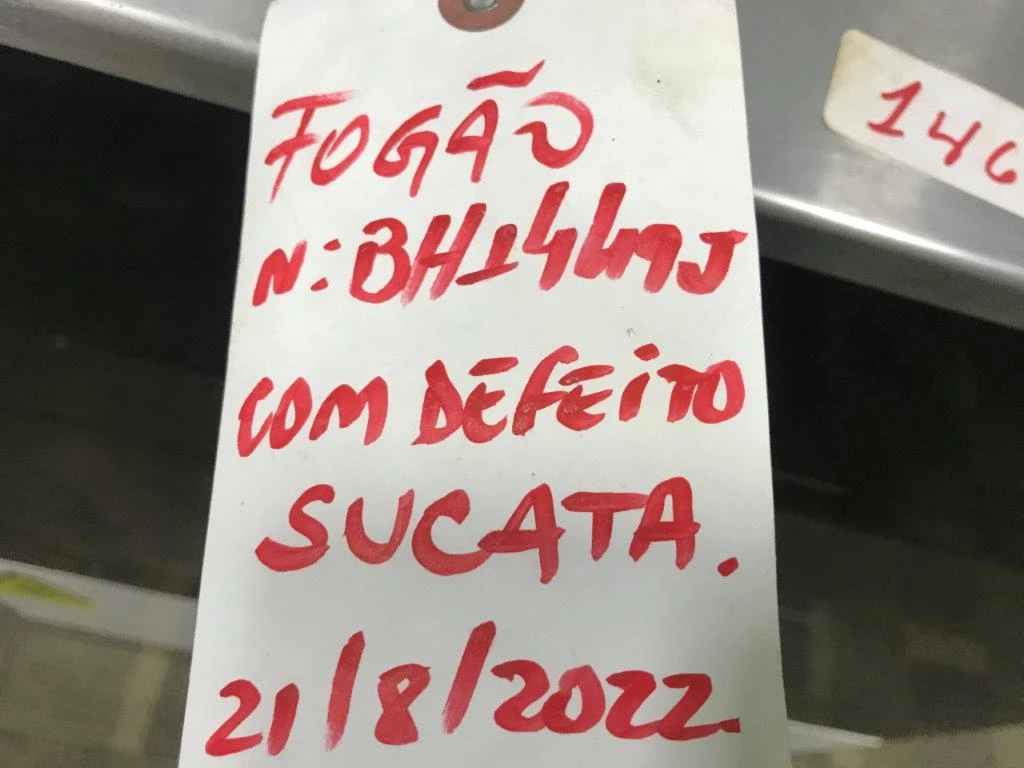 FOGÃO
N:BH1449J
COM DEFEITO
SUCATA.
21/8/2022.
146